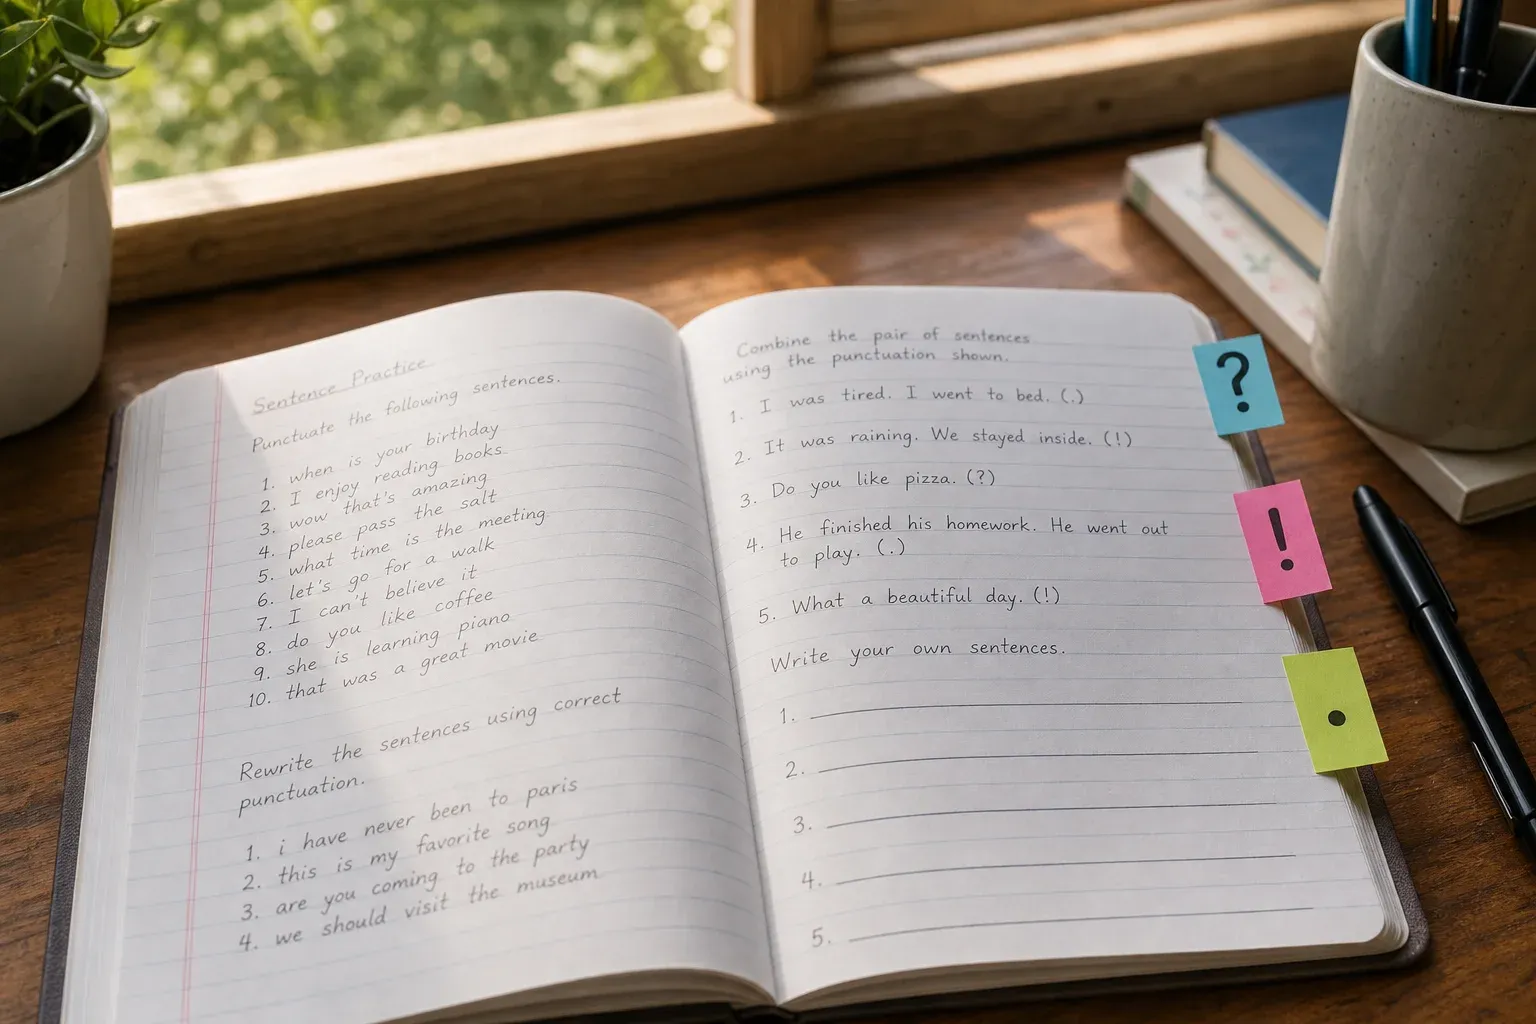 Sentence Practice
Punctuate the following sentences.
1. when is your birthday
2. I enjoy reading books
3. wow that's amazing
4. please pass the salt
5. what time is the meeting
6. let's go for a walk
7. I can't believe it
8. do you like coffee
9. she is learning piano
10. that was a great movie
Rewrite the sentences using correct
punctuation.
1. i have never been to paris
2. this is my favorite song
3. are you coming to the party
4. we should visit the museum
Combine the pair of sentences
using the punctuation shown.
1. I was tired. I went to bed. (.)
2. It was raining. We stayed inside. (!)
3. Do you like pizza. (?)
4. He finished his homework. He went out
to play. (.)
5. What a beautiful day. (!)
Write your own sentences.
1.
2.
3.
4.
5.
?
!
.